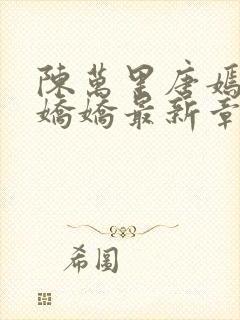 陳萬里唐嫣
嬌嬌最新章
希圖